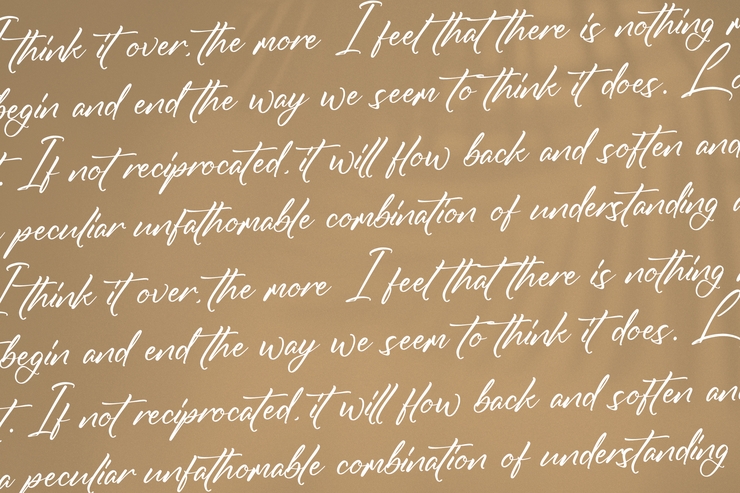 I think it over, the more I feel that there is nothing
begin and end the way we seem to think it does.
If not reciprocated, it will flow back and soften and
peculiar unfathomable combination of understanding
I think it over, the more I feel that there is nothing
begin and end the way we seem to think it does.
t. If not reciprocated, it will flow back and soften
a peculiar unfathomable combination of understanding